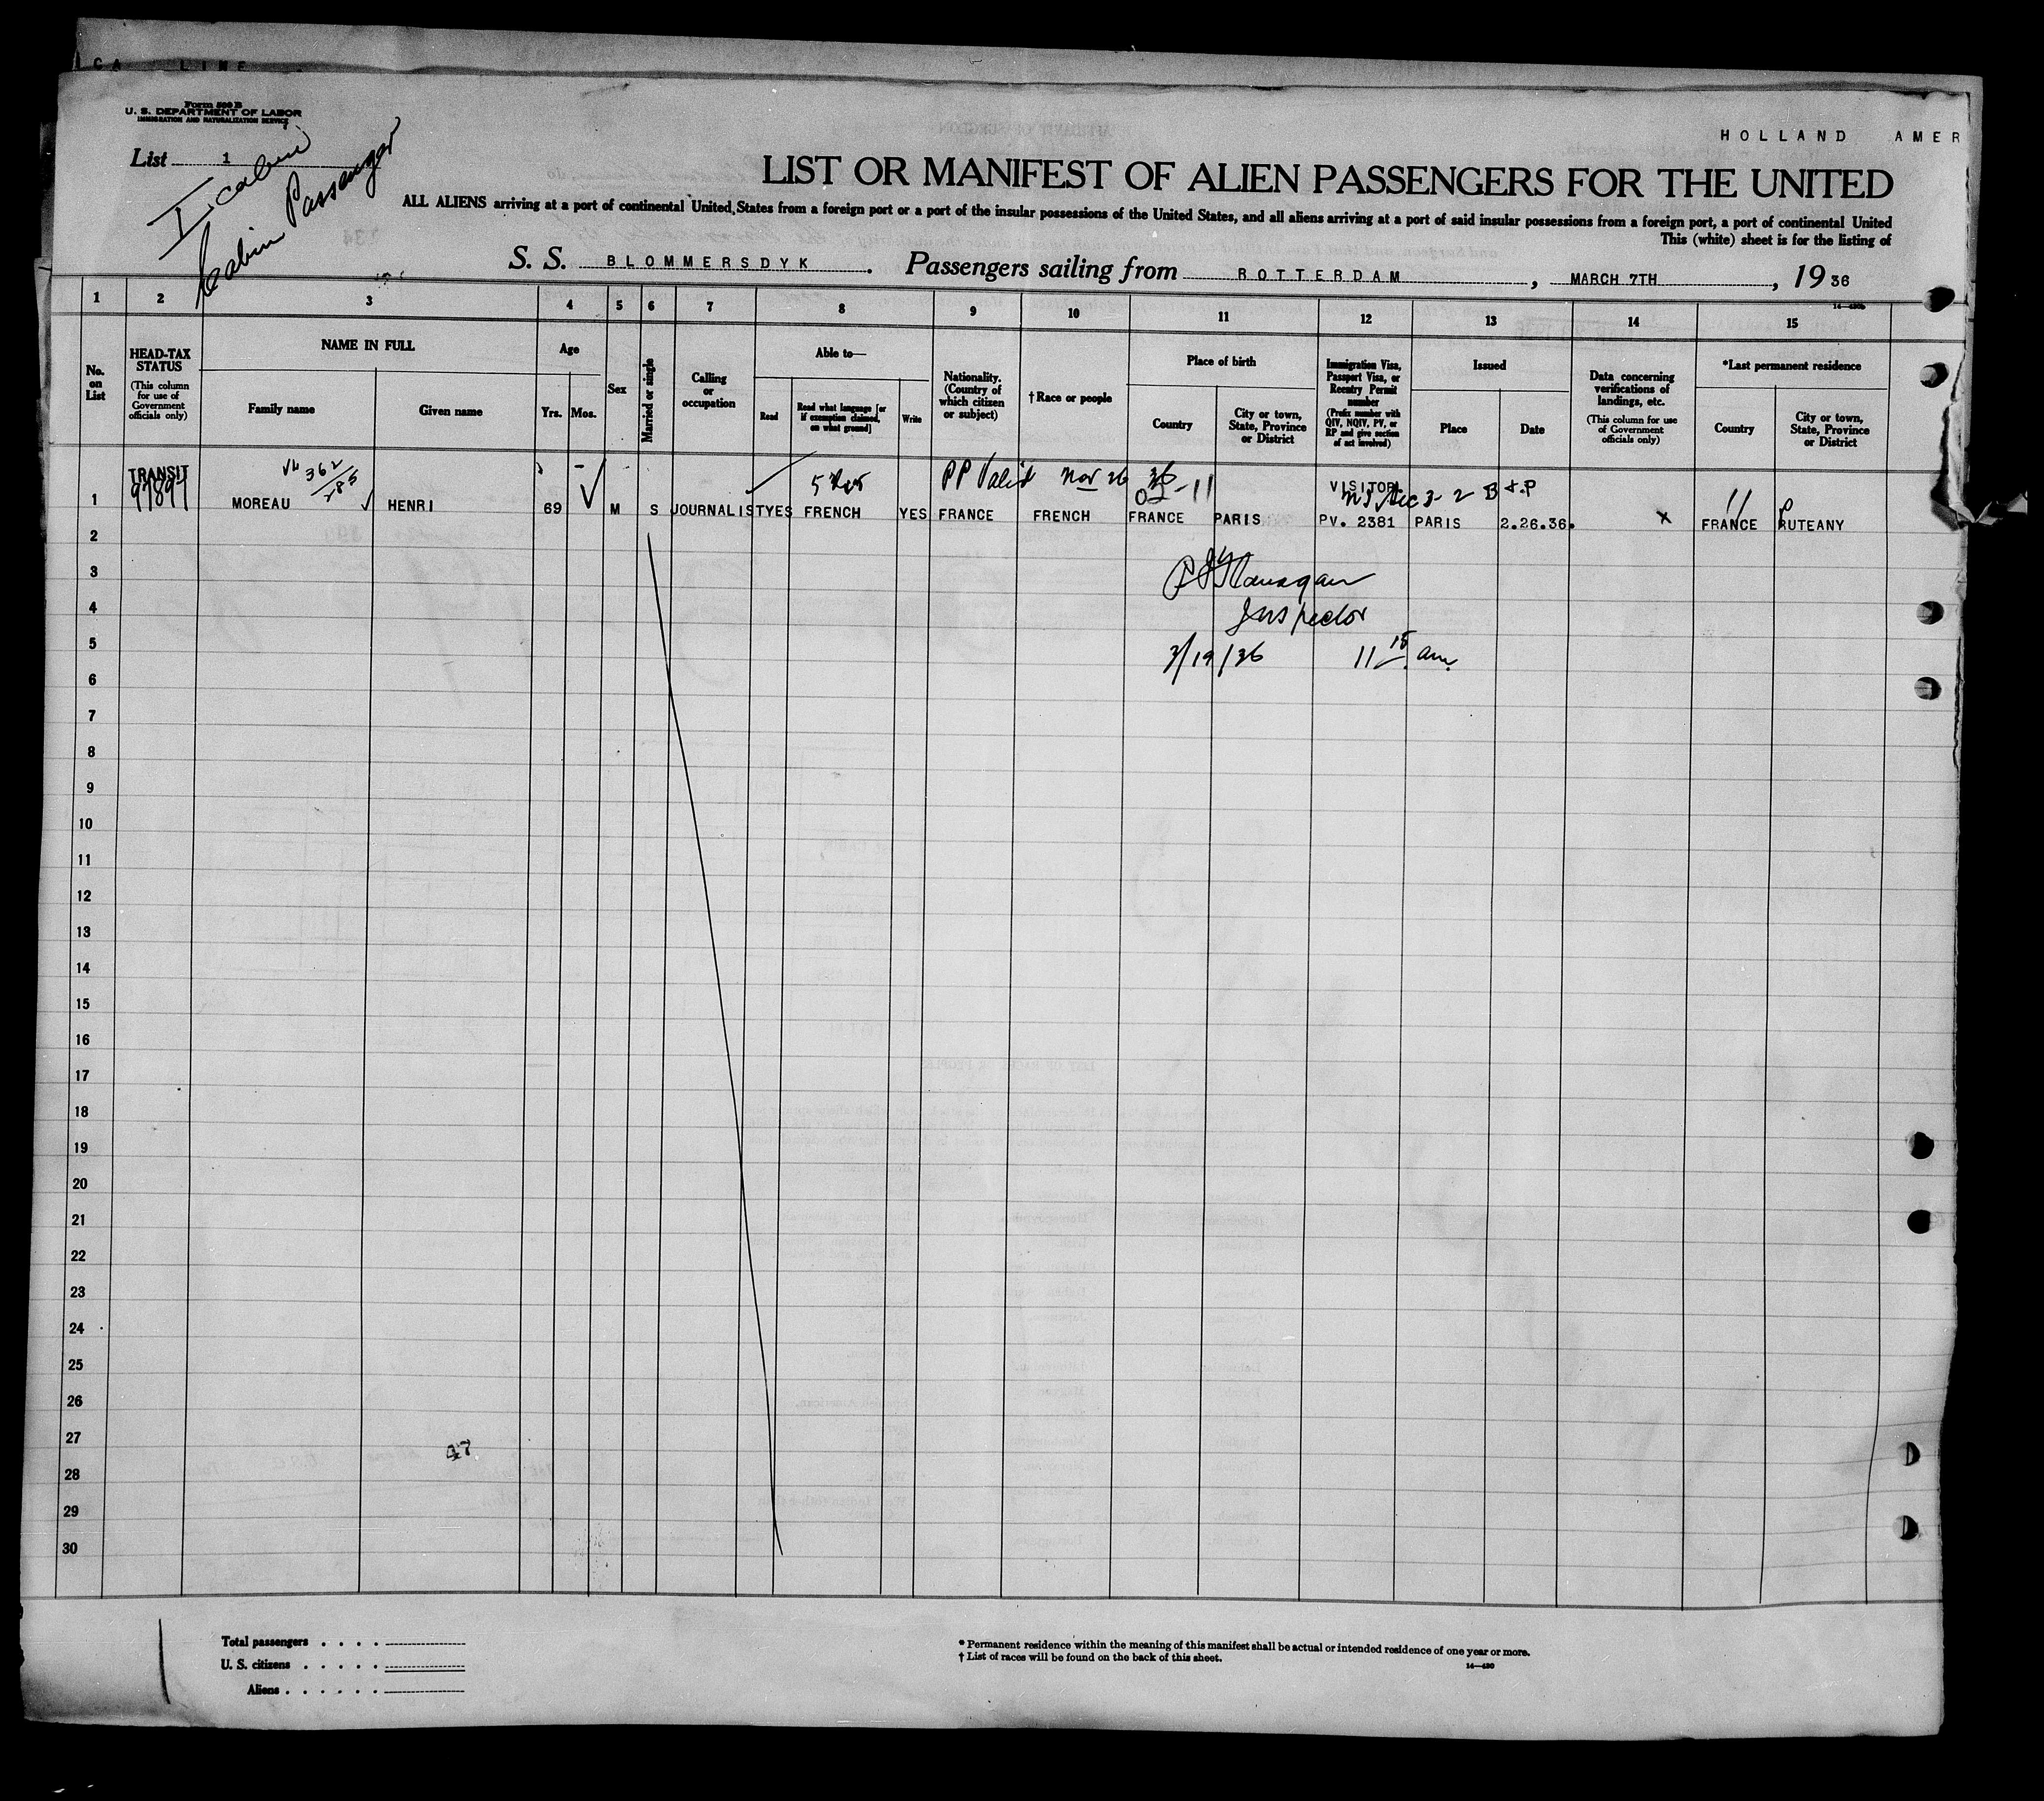 CA LINE
Form 500 B
U. S. DEPARTMENT OF LABOR
IMMIGRATION AND NATURALIZATION SERVICE
List 1
I cabin
Cabin Passenger
HOLLAND AMER
LIST OR MANIFEST OF ALIEN PASSENGERS FOR THE UNITED
ALL ALIENS arriving at a port of continental United States from a foreign port or a port of the insular possessions of the United States, and all aliens arriving at a port of said insular possessions from a foreign port, a port of continental United
This (white) sheet is for the listing of
S. S. BLOMMERSDYK. Passengers sailing from ROTTERDAM, MARCH 7TH, 1936
14—430b
1 2 3 4 5 6 7 8 9 10 11 12 13 14 15
No. on List
HEAD-TAX STATUS
(This column for use of Government officials only)
NAME IN FULL
Family name
Given name
Age
Yrs. Mos.
Sex
Married or single
Calling or occupation
Able to—
Read
Read what language [or if exemption claimed, on what ground]
Write
Nationality. (Country of which citizen or subject)
† Race or people
Place of birth
Country
City or town, State, Province or District
Immigration Visa, Passport Visa, or Reentry Permit number
(Prefix number with QIV, NQIV, PV, or RP and give section of act involved)
Issued
Place
Date
Data concerning verifications of landings, etc.
(This column for use of Government officials only)
*Last permanent residence
Country
City or town, State, Province or District
TRANSIT
97897
362/285
PP Valid Nov 26 36
VISITOR
Sec 3-2 B & P
1 MOREAU HENRI 69 M S JOURNALIST YES FRENCH YES FRANCE FRENCH FRANCE PARIS PV. 2381 PARIS 2.26.36. x FRANCE PUTEANY
2
3
Flanagan
4
Inspector
5
3/19/36 11 15 am.
6
7
8
9
10
11
12
13
14
15
16
17
18
19
20
21
22
23
24
25
26
27
47
28
29
30
Total passengers . . . .
U. S. citizens . . . . .
Aliens . . . . . .
* Permanent residence within the meaning of this manifest shall be actual or intended residence of one year or more.
† List of races will be found on the back of this sheet.
14—430